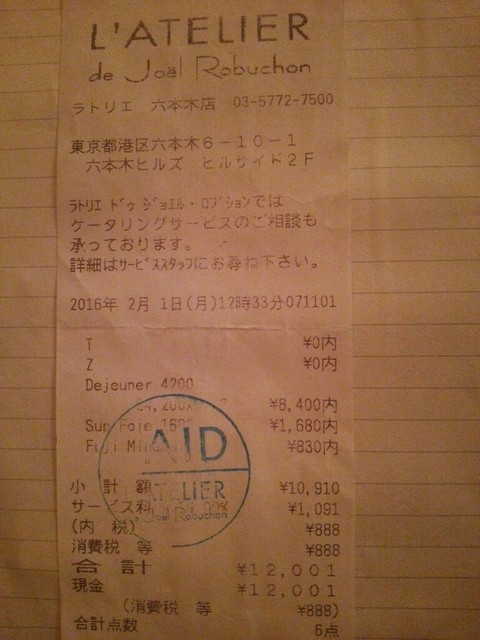 L'ATELIER
de Joël Robuchon
ラトリエ 六本木店 03-5772-7500
東京都港区六本木6-10-1
六本木ヒルズ ヒルサイド2F
ﾗﾄﾘｴ ﾄﾞｩ ｼﾞｮｴﾙ・ﾛﾌﾞｼｮﾝでは
ケータリングサービスのご相談も
承っております。
詳細はｻｰﾋﾞｽｽﾀｯﾌにお尋ね下さい。
2016年 2月 1日(月)12時33分071101
T ¥0内
Z ¥0内
Dejeuner 4200
¥8,400内
Sup Foie ¥1,680内
Fuji ¥830内
AID
ATELIER
Joël Robuchon
小 計 額 ¥10,910
サービス料 ¥1,091
(内 税) ¥888
消費税 等 ¥888
合 計 ¥12,001
現金 ¥12,001
(消費税 等 ¥888)
合計点数 6点